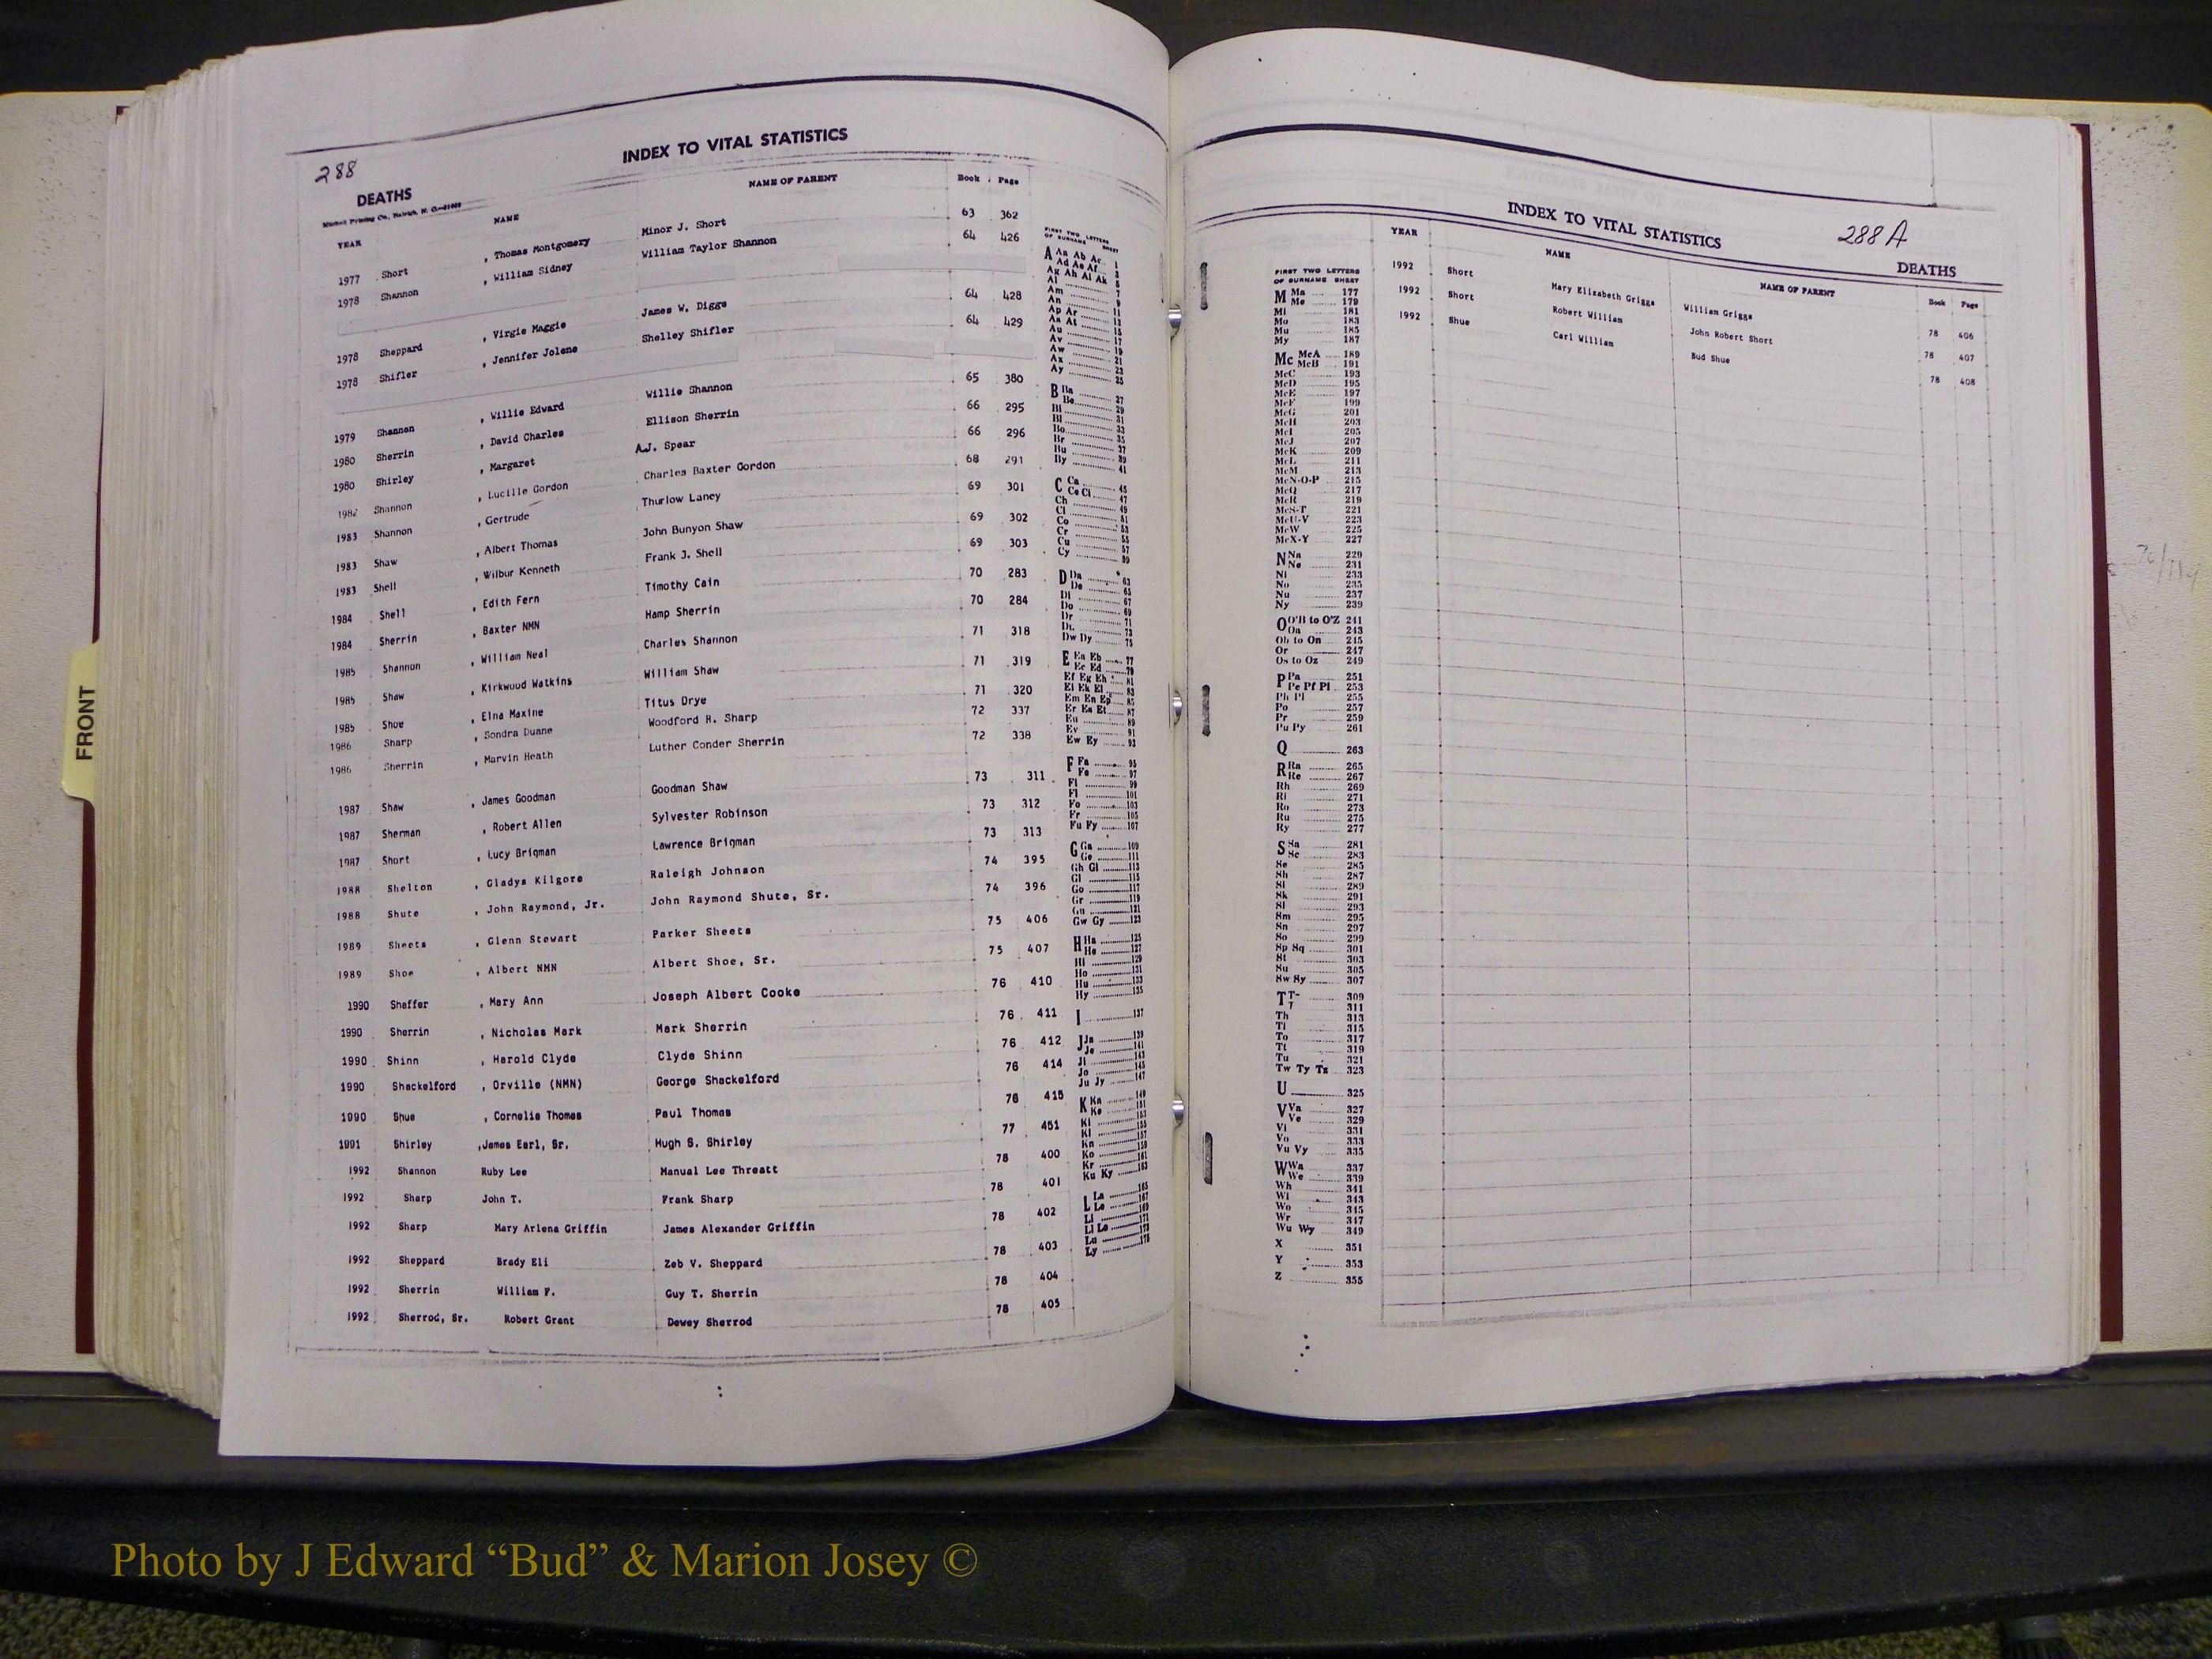 288
INDEX TO VITAL STATISTICS
DEATHS
YEAR NAME NAME OF PARENT Book Page
1977 Short , Thomas Montgomery Minor J. Short 63 362
1978 Shannon , William Sidney William Taylor Shannon 64 426
1978 Sheppard , Virgie Maggie James W. Diggs 64 428
1978 Shifler , Jennifer Jolene Shelley Shifler 64 429
1979 Shannon , Willie Edward Willie Shannon 65 380
1980 Sherrin , David Charles Ellison Sherrin 66 295
1980 Shirley , Margaret A.J. Spear 66 296
1982 Shannon , Lucille Gordon Charles Baxter Gordon 68 291
1983 Shannon , Gertrude Thurlow Laney 69 301
1983 Shaw , Albert Thomas John Bunyon Shaw 69 302
1983 Shell , Wilbur Kenneth Frank J. Shell 69 303
1984 Shell , Edith Fern Timothy Cain 70 283
1984 Sherrin , Baxter NMN Hamp Sherrin 70 284
1985 Shannon , William Neal Charles Shannon 71 318
1985 Shaw , Kirkwood Watkins William Shaw 71 319
1985 Shoe , Elna Maxine Titus Drye 71 320
1986 Sharp , Sondra Duane Woodford H. Sharp 72 337
1986 Sherrin , Marvin Heath Luther Conder Sherrin 72 338
1987 Shaw , James Goodman Goodman Shaw 73 311
1987 Sherman , Robert Allen Sylvester Robinson 73 312
1987 Short , Lucy Brigman Lawrence Brigman 73 313
1988 Shelton , Gladys Kilgore Raleigh Johnson 74 395
1988 Shute , John Raymond, Jr. John Raymond Shute, Sr. 74 396
1989 Sheets , Glenn Stewart Parker Sheets 75 406
1989 Shoe , Albert NMN Albert Shoe, Sr. 75 407
1990 Shaffer , Mary Ann Joseph Albert Cooke 76 410
1990 Sherrin , Nicholas Mark Mark Sherrin 76 411
1990 Shinn , Harold Clyde Clyde Shinn 76 412
1990 Shackelford , Orville (NMN) George Shackelford 76 414
1990 Shue , Cornelia Thomas Paul Thomas 76 415
1991 Shirley ,James Earl, Sr. Hugh S. Shirley 77 451
1992 Shannon Ruby Lee Manual Lee Threatt 78 400
1992 Sharp John T. Frank Sharp 78 401
1992 Sharp Mary Arlena Griffin James Alexander Griffin 78 402
1992 Sheppard Brady Eli Zeb V. Sheppard 78 403
1992 Sherrin William F. Guy T. Sherrin 78 404
1992 Sherrod, Sr. Robert Grant Dewey Sherrod 78 405
FIRST TWO LETTERS
OF SURNAME SHEET
A Aa Ab Ac 1
Ad Ae Af 3
Ag Ah Ai Ak 5
Al 7
Am 9
An 11
Ap Ar 13
As At 15
Au 17
Av 19
Aw 21
Ax 23
Ay 25
B Ba 27
Be 29
Bi 31
Bl 33
Bo 35
Br 37
Bu 39
By 41
C Ca 45
Ce Ci 47
Ch 49
Cl 51
Co 53
Cr 55
Cu 57
Cy 59
D Da 63
De 65
Di 67
Do 69
Dr 71
Du 73
Dw Dy 75
E Ea Eb 77
Ec Ed 79
Ef Eg Eh 81
Ei Ek El 83
Em En Ep 85
Er Es Et 87
Eu 89
Ev 91
Ew Ey 93
F Fa 95
Fe 97
Fi 99
Fl 101
Fo 103
Fr 105
Fu Fy 107
G Ga 109
Ge 111
Gh Gi 113
Gl 115
Go 117
Gr 119
Gu 121
Gw Gy 123
H Ha 125
He 127
Hi 129
Ho 131
Hu 133
Hy 135
I 137
J Ja 139
Je 141
Ji 143
Jo 145
Ju Jy 147
K Ka 149
Ke 151
Ki 153
Kl 155
Kn 157
Ko 159
Kr 161
Ku Ky 163
L La 165
Le 167
Li 169
Ll Lo 171
Lu 173
Ly 175
INDEX TO VITAL STATISTICS
288 A
DEATHS
YEAR NAME NAME OF PARENT Book Page
1992 Short Mary Elizabeth Griggs William Griggs 78 406
1992 Short Robert William John Robert Short 78 407
1992 Shue Carl William Bud Shue 78 408
FIRST TWO LETTERS
OF SURNAME SHEET
M Ma 177
Me 179
Mi 181
Mo 183
Mu 185
My 187
Mc McA 189
McB 191
McC 193
McD 195
McE 197
McF 199
McG 201
McH 203
McI 205
McJ 207
McK 209
McL 211
McM 213
McN-O-P 215
McQ 217
McR 219
McS-T 221
McU-V 223
McW 225
McX-Y 227
N Na 229
Ne 231
Ni 233
No 235
Nu 237
Ny 239
O O'B to O'Z 241
Oa 243
Ob to On 245
Or 247
Os to Oz 249
P Pa 251
Pe Pf Pl 253
Ph Pi 255
Po 257
Pr 259
Pu Py 261
Q 263
R Ra 265
Re 267
Rh 269
Ri 271
Ro 273
Ru 275
Ry 277
S Sa 281
Sc 283
Se 285
Sh 287
Si 289
Sk 291
Sl 293
Sm 295
Sn 297
So 299
Sp Sq 301
St 303
Su 305
Sw Sy 307
T T- 309
T 311
Th 313
Ti 315
To 317
Tt 319
Tu 321
Tw Ty Tz 323
U 325
V Va 327
Ve 329
Vi 331
Vo 333
Vu Vy 335
W Wa 337
We 339
Wh 341
Wi 343
Wo 345
Wr 347
Wu Wy 349
X 351
Y 353
Z 355
FRONT
Photo by J Edward “Bud” & Marion Josey ©